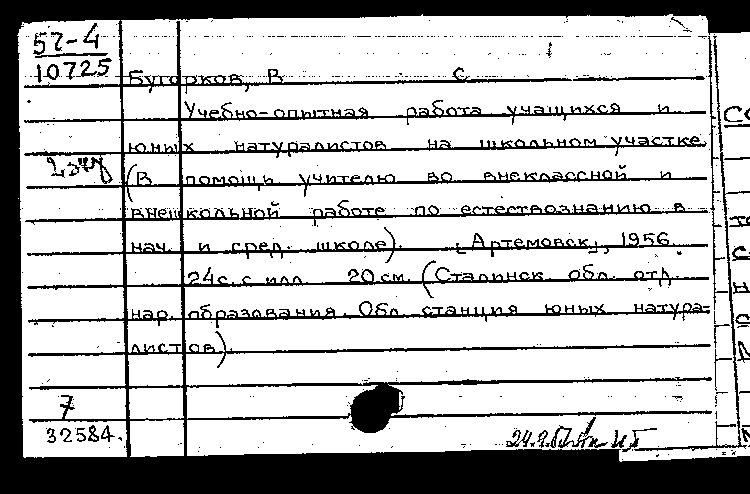 57-4
10725
Бугорков, В С
Учебно-опытная работа учащихся и
юных натуралистов на школьном участке
(В помощь учителю во внеклассной и
внешкольной работе по естествознанию в
нач. и сред. школе). [Артемовск], 1956.
24 с. с илл. 20 см. (Сталинск. обл. отд.
нар. образования. Обл. станция юных натура-
листов)
7
32584.